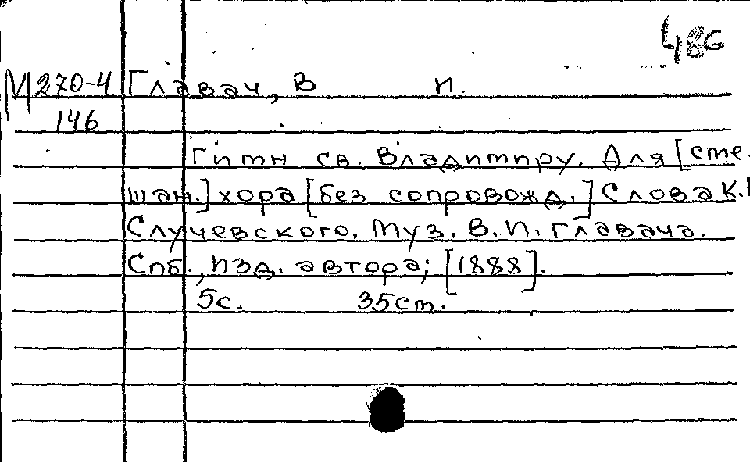 486
М 270-4 Главач, В И.
146
Гимн св. Владимиру. Для [сме-
шан.] хора [без сопровожд.] Слова К.
Случевского. Муз. В. И. Главача.
Спб., изд. автора; [1888].
5с. 35см.